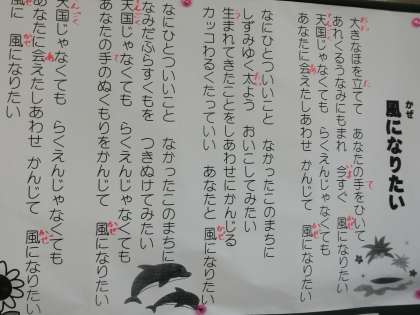 風になりたい
大きなほを立てて あなたの手をひいて
あれくるうなみにもまれ 今すぐ 風になりたい
天国じゃなくても らくえんじゃなくても
あなたに会えたしあわせ かんじて 風になりたい
なにひとついいこと なかったこのまちに
しずみゆく太よう おいこしてみたい
生まれてきたことをしあわせにかんじる
カッコわるくたっていい あなたと 風になりたい
なにひとついいこと なかったこのまちに
なみだふらすくもを つきぬけてみたい
天国じゃなくても らくえんじゃなくても
あなたの手のぬくもりをかんじて 風になりたい
天国じゃなくても らくえんじゃなくても
あなたに会えたしあわせ かんじて 風になりたい
風に 風になりたい